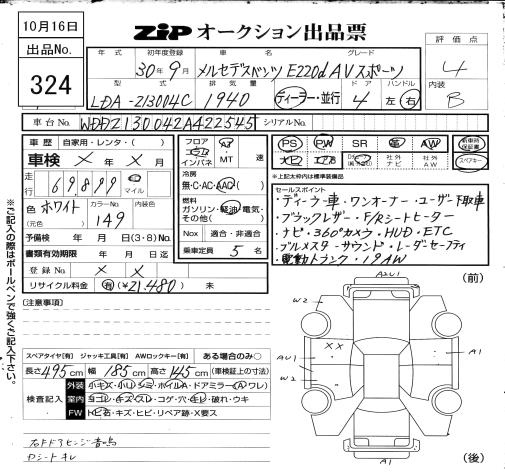 10月16日
出品No.
324
ZIP オークション出品票
評価点
4
内装
B
年式 初年度登録 車名 グレード
30年9月 メルセデスベンツ E220d AVスポーツ
型式 排気量 ドア ハンドル
LDA-213004C 1940 ディーラー・並行 4 左 右
車台No. WDDZ130042A422545 シリアルNo.
車歴 自家用・レンタ・( )
車検 × 年 × 月
走行 69,899 マイル
色 ホワイト カラーNo. 149
(元色)
予備検 年 月 日(3・8)No.
書類有効期限 年 月 日迄
登録No. × ×
リサイクル料金 有(¥21,480) 未
フロア コラム インパネ AT MT 速
冷房
無・C・AC・AAC( )
燃料
ガソリン・軽油・電気・その他( )
Nox 適合・非適合
乗車定員 5 名
PS PW SR 革 AW 新車時保証書
ナビ エアB 社外ナビ 社外AW スペアキー
*上記太枠内は標準装備品
セールスポイント
・ディーラー車・ワンオーナー・ユーザー下取車
・ブラックレザー・F/Rシートヒーター
・ナビ・360°カメラ・HUD・ETC
・ブルメスター・サウンド・レーダーセーフティ
・電動トランク・19AW
[注意事項]
スペアタイヤ[有] ジャッキ工具[有] AWロックキー[有] ある場合のみ○
長さ 495cm 幅 185cm 高さ 145cm (車検証上の寸法)
検査記入
外装 小キズ・小U・シミ・ホイルA・ドアミラー(A・ワレ)
室内 ヨゴレ・キズ・スレ・コゲ・穴・キレ・破れ・ウキ
FW トビ石・キズ・ヒビ・リペア跡・X要ス
右ドアヒンジ音鳴
Dシートキレ
※ご記入の際はボールペンで強くご記入下さい。
(前)
A2U1
W2
XX
AU1
W2
A1
A1
(後)